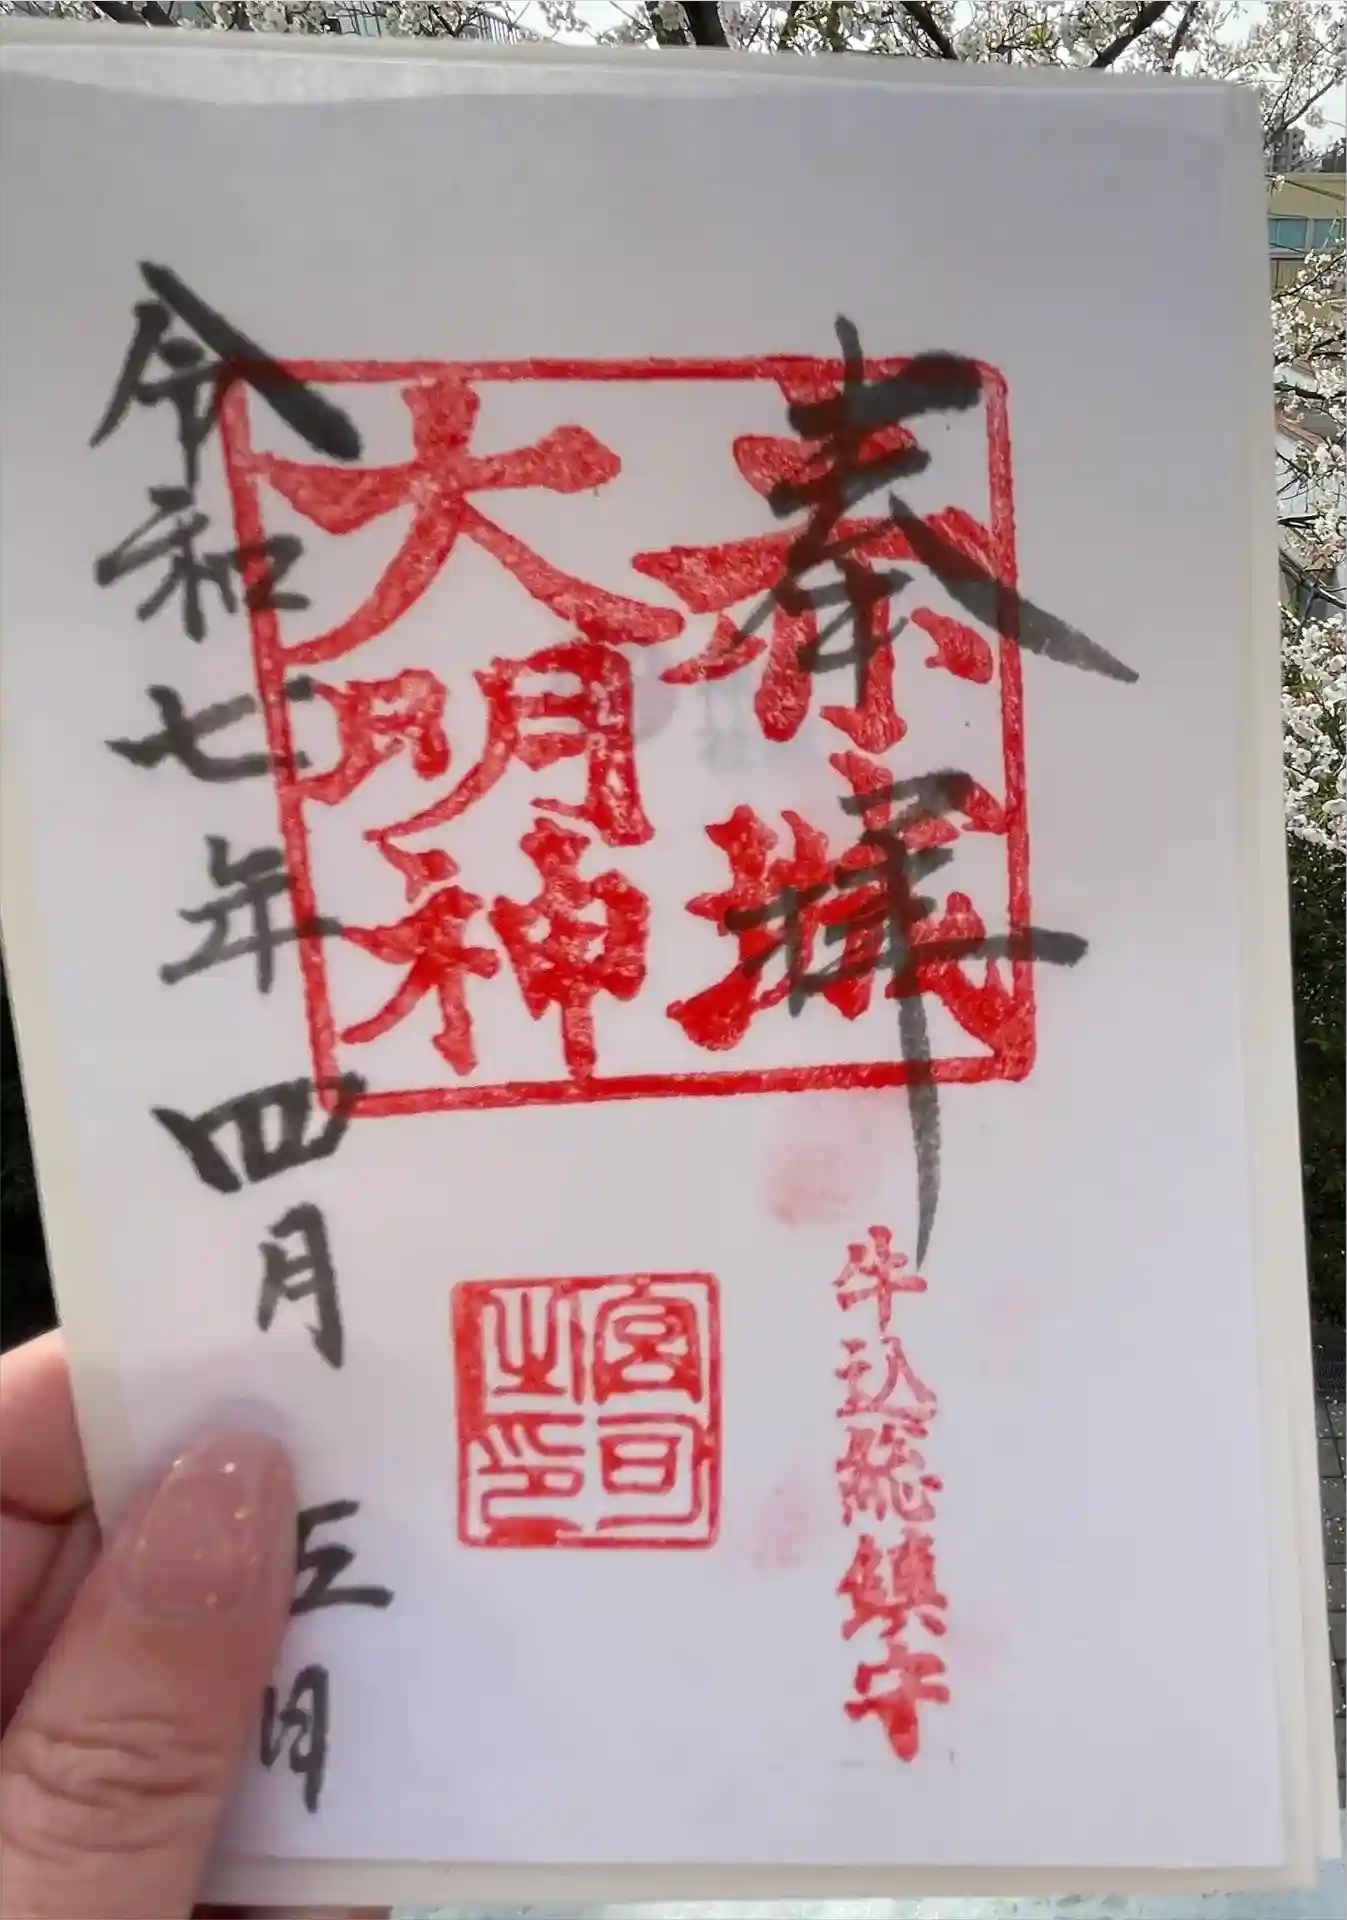 奉拝
赤城
大明神
牛込総鎮守
宮司
之印
令和七年四月五日